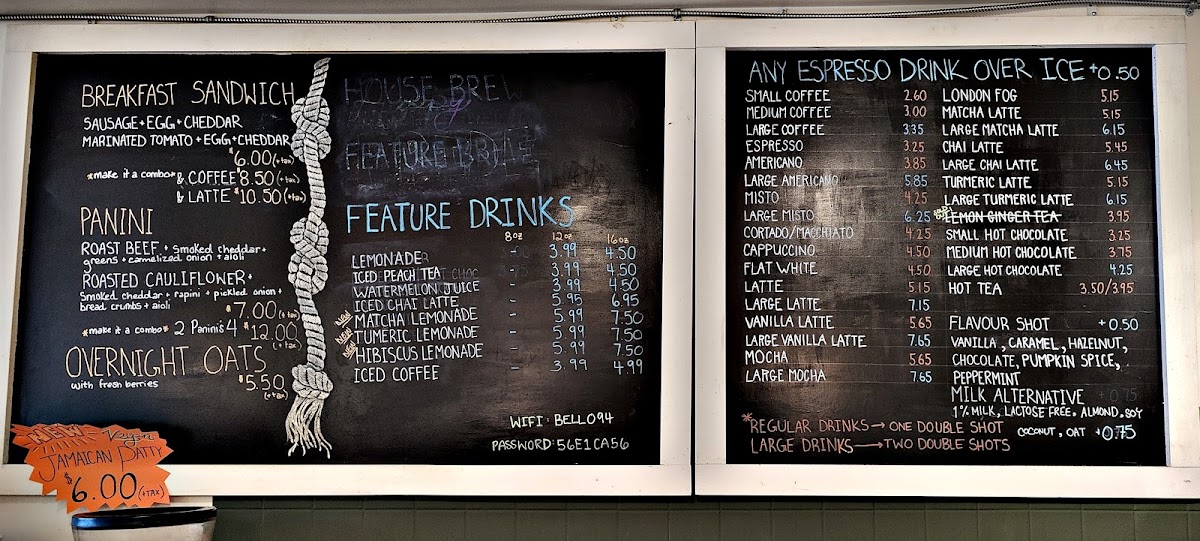 BREAKFAST SANDWICH
SAUSAGE + EGG + CHEDDAR
MARINATED TOMATO + EGG + CHEDDAR
$6.00 (+tax)
*make it a combo* & COFFEE $8.50 (+tax)
& LATTE $10.50 (+tax)
PANINI
ROAST BEEF + Smoked cheddar +
greens + camelized onion + aioli
ROASTED CAULIFLOWER +
Smoked cheddar + rapini + pickled onion +
bread crumbs + aioli
$7.00 (+tax)
*make it a combo* 2 Panini's 4 $12.00 (+tax)
OVERNIGHT OATS
with fresh berries
$5.50 (+tax)
NEW Vegan
JAMAICAN PATTY
$6.00 (+TAX)
HOUSE BREW
FEATURE
FEATURE DRINKS
8oz 12oz 16oz
LEMONADE - 3.99 4.50
ICED PEACH TEA - 3.99 4.50
WATERMELON JUICE - 3.99 4.50
ICED CHAI LATTE - 5.95 6.95
NEW MATCHA LEMONADE - 5.99 7.50
NEW TUMERIC LEMONADE - 5.99 7.50
NEW HIBISCUS LEMONADE - 5.99 7.50
ICED COFFEE - 3.99 4.99
WIFI: BELL094
PASSWORD: 56E1CA56
ANY ESPRESSO DRINK OVER ICE +0.50
SMALL COFFEE 2.60
MEDIUM COFFEE 3.00
LARGE COFFEE 3.35
ESPRESSO 3.25
AMERICANO 3.85
LARGE AMERICANO 5.85
MISTO 4.25
LARGE MISTO 6.25
CORTADO/MACCHIATO 4.25
CAPPUCCINO 4.50
FLAT WHITE 4.50
LATTE 5.15
LARGE LATTE 7.15
VANILLA LATTE 5.65
LARGE VANILLA LATTE 7.65
MOCHA 5.65
LARGE MOCHA 7.65
LONDON FOG 5.15
MATCHA LATTE 5.15
LARGE MATCHA LATTE 6.15
CHAI LATTE 5.45
LARGE CHAI LATTE 6.45
TURMERIC LATTE 5.15
LARGE TURMERIC LATTE 6.15
LEMON GINGER TEA 3.95
SMALL HOT CHOCOLATE 3.25
MEDIUM HOT CHOCOLATE 3.75
LARGE HOT CHOCOLATE 4.25
HOT TEA 3.50/3.95
FLAVOUR SHOT +0.50
VANILLA, CARAMEL, HAZELNUT,
CHOCOLATE, PUMPKIN SPICE,
PEPPERMINT
MILK ALTERNATIVE +0.75
1% MILK, LACTOSE FREE, ALMOND, SOY
COCONUT, OAT +0.75
*REGULAR DRINKS → ONE DOUBLE SHOT
LARGE DRINKS → TWO DOUBLE SHOTS